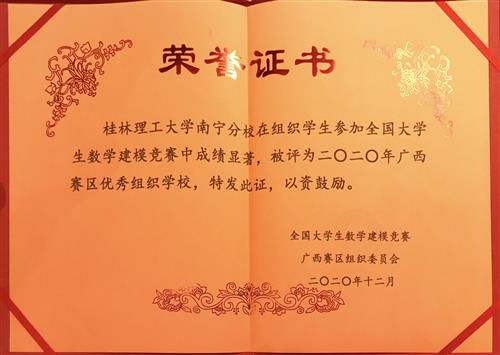 荣誉证书
桂林理工大学南宁分校在组织学生参加全国大学
生数学建模竞赛中成绩显著，被评为二〇二〇年广西
赛区优秀组织学校，特发此证，以资鼓励。
全国大学生数学建模竞赛
广西赛区组织委员会
二〇二〇年十二月